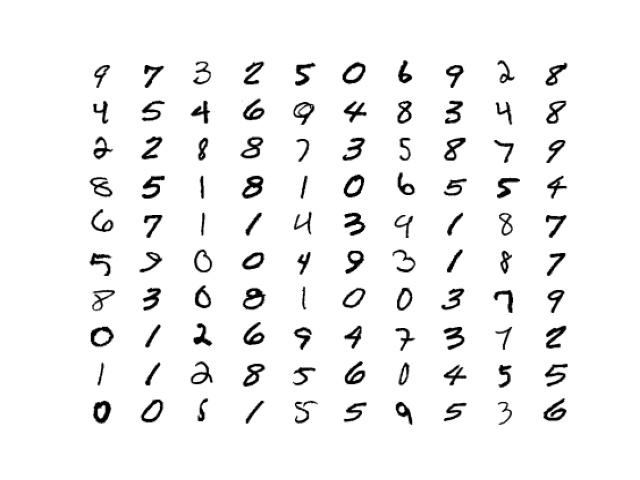 9 7 3 2 5 0 6 9 2 8
4 5 4 6 9 4 8 3 4 8
2 2 8 8 7 3 5 8 7 9
8 5 1 8 1 0 6 5 5 4
6 7 1 1 4 3 9 1 8 7
5 9 0 0 4 9 3 1 8 7
8 3 0 8 1 0 0 3 7 9
0 1 2 6 9 4 7 3 7 2
1 1 2 8 5 6 0 4 5 5
0 0 5 1 5 5 9 5 3 6